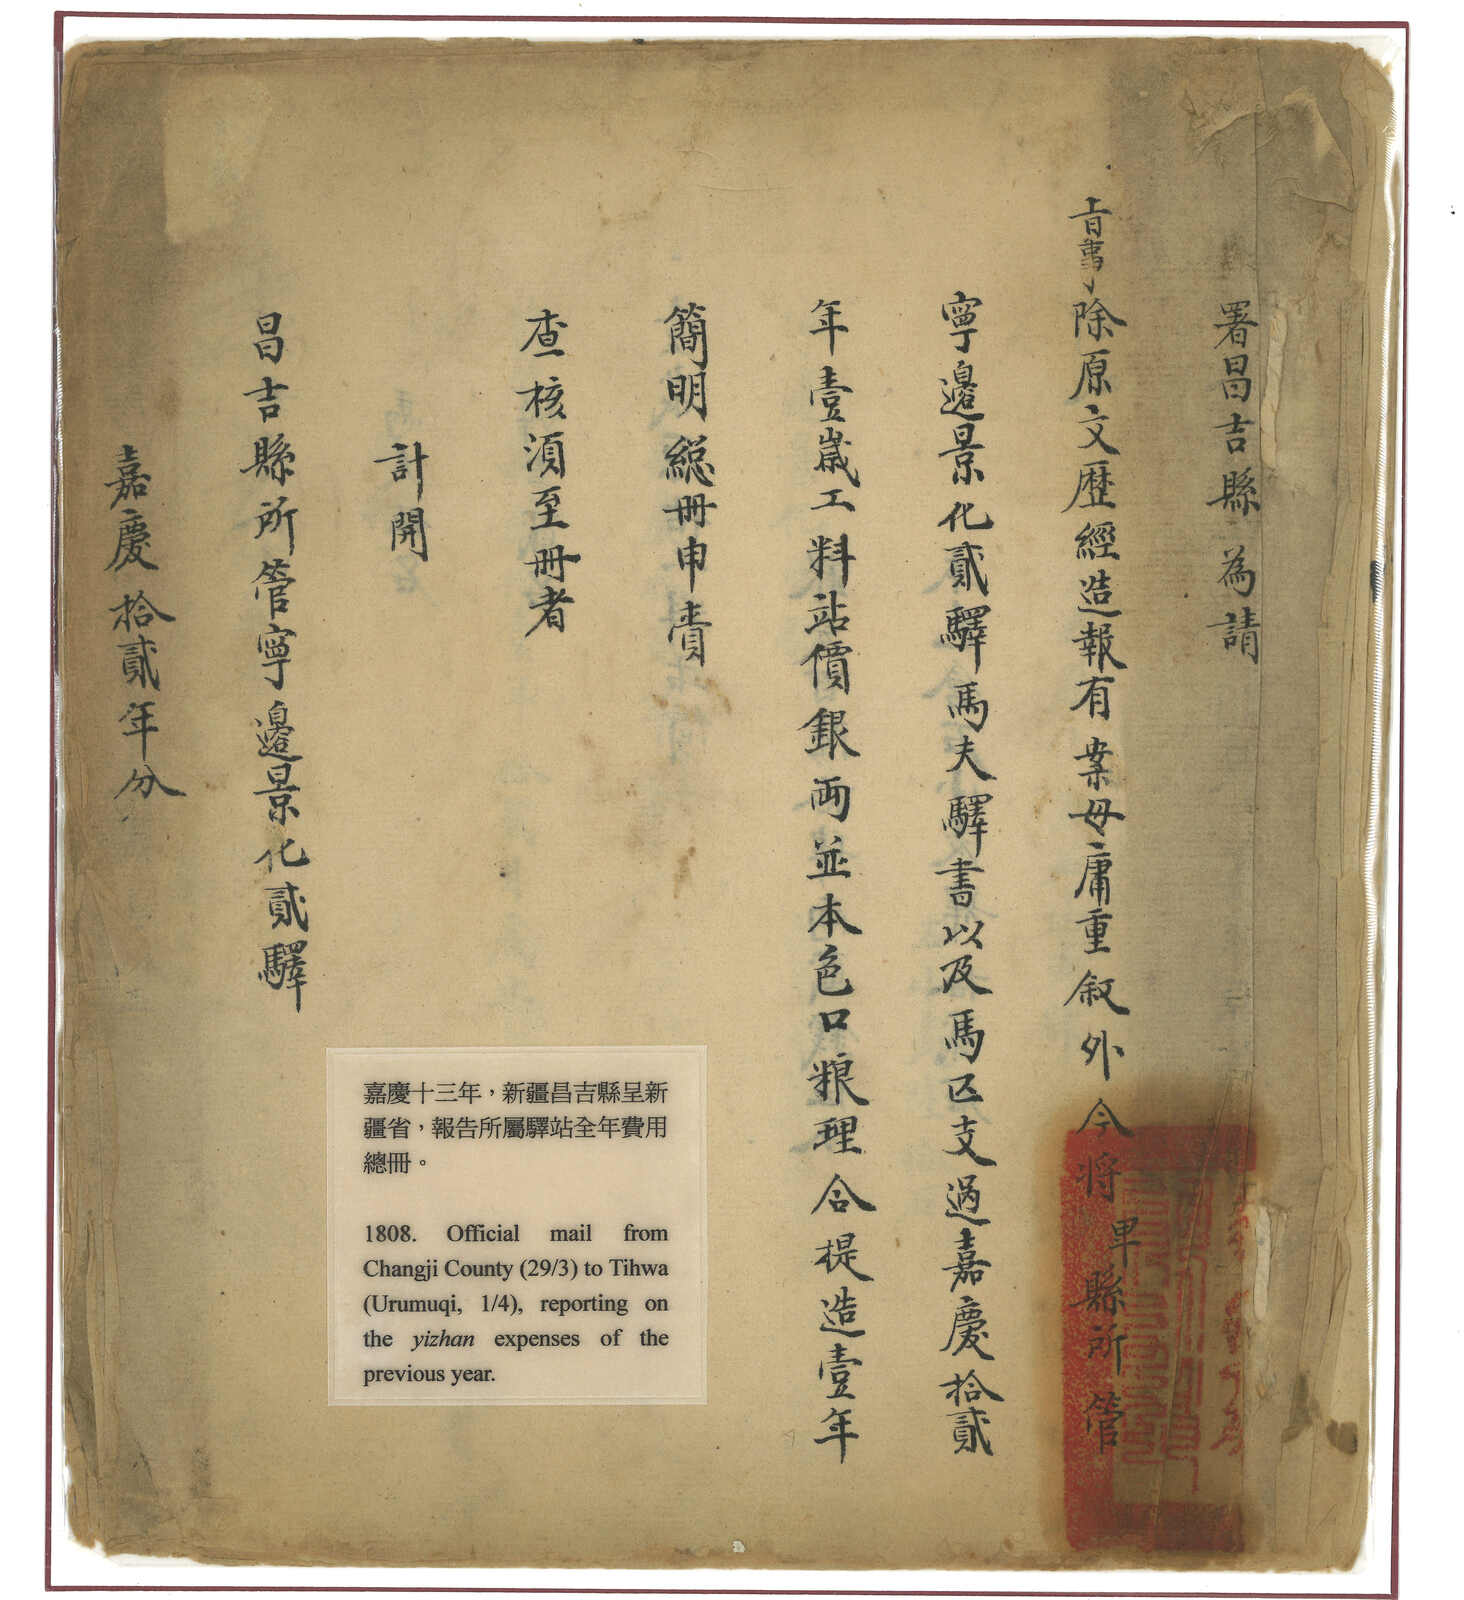 署昌吉縣 為請
旨事除原文歷經造報有案毋庸重叙外今將卑縣所管
寧邊景化貳驛馬夫驛書以及馬匹支過嘉慶拾貳
年壹歲工料站價銀両並本色口粮理合提造壹年
簡明總冊申賫
查核須至冊者
計開
昌吉縣所管寧邊景化貳驛
嘉慶拾貳年分
嘉慶十三年，新疆昌吉縣呈新
疆省，報告所屬驛站全年費用
總冊。
1808. Official mail from
Changji County (29/3) to Tihwa
(Urumuqi, 1/4), reporting on
the yizhan expenses of the
previous year.